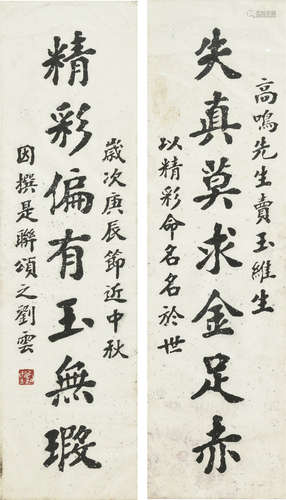 高鳴先生賣玉維生
失真莫求金足赤
以精彩命名名於世
歲次庚辰節近中秋
精彩偏有玉無瑕
因撰是聯頌之劉雲